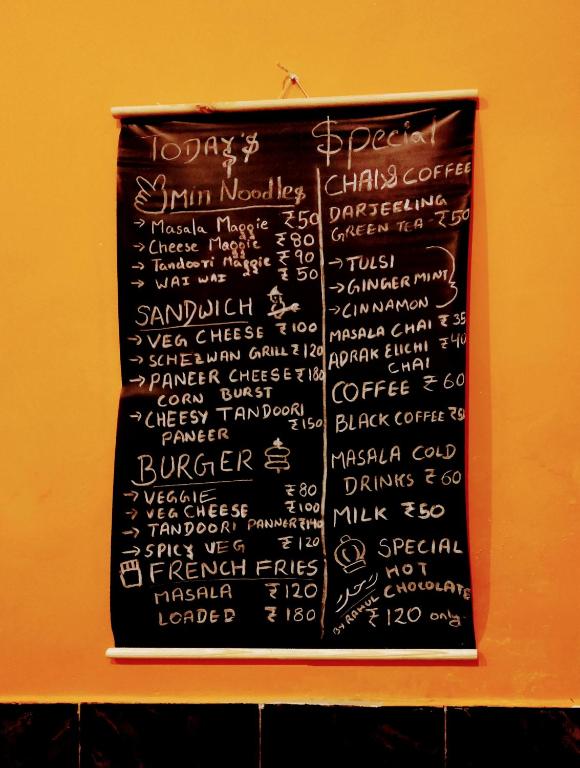 TODAY'$ $pecial
2 Min Noodles
→ Masala Maggie ₹50
→ Cheese Maggie ₹80
→ Tandoori Maggie ₹90
→ WAI WAI ₹50
SANDWICH
→ VEG CHEESE ₹100
→ SCHEZWAN GRILL ₹120
→ PANEER CHEESE ₹180
CORN BURST
→ CHEESY TANDOORI
PANEER ₹150
BURGER
→ VEGGIE ₹80
→ VEG CHEESE ₹100
→ TANDOORI PANNER ₹140
→ SPICY VEG ₹120
FRENCH FRIES
MASALA ₹120
LOADED ₹180
CHAI & COFFEE
DARJEELING
GREEN TEA - ₹50
→ TULSI
→ GINGER MINT
→ CINNAMON
MASALA CHAI ₹35
ADRAK ELICHI ₹40
CHAI
COFFEE ₹60
BLACK COFFEE
MASALA COLD
DRINKS ₹60
MILK ₹50
SPECIAL
HOT
CHOCOLATE
BY RAHUL
₹120 only.